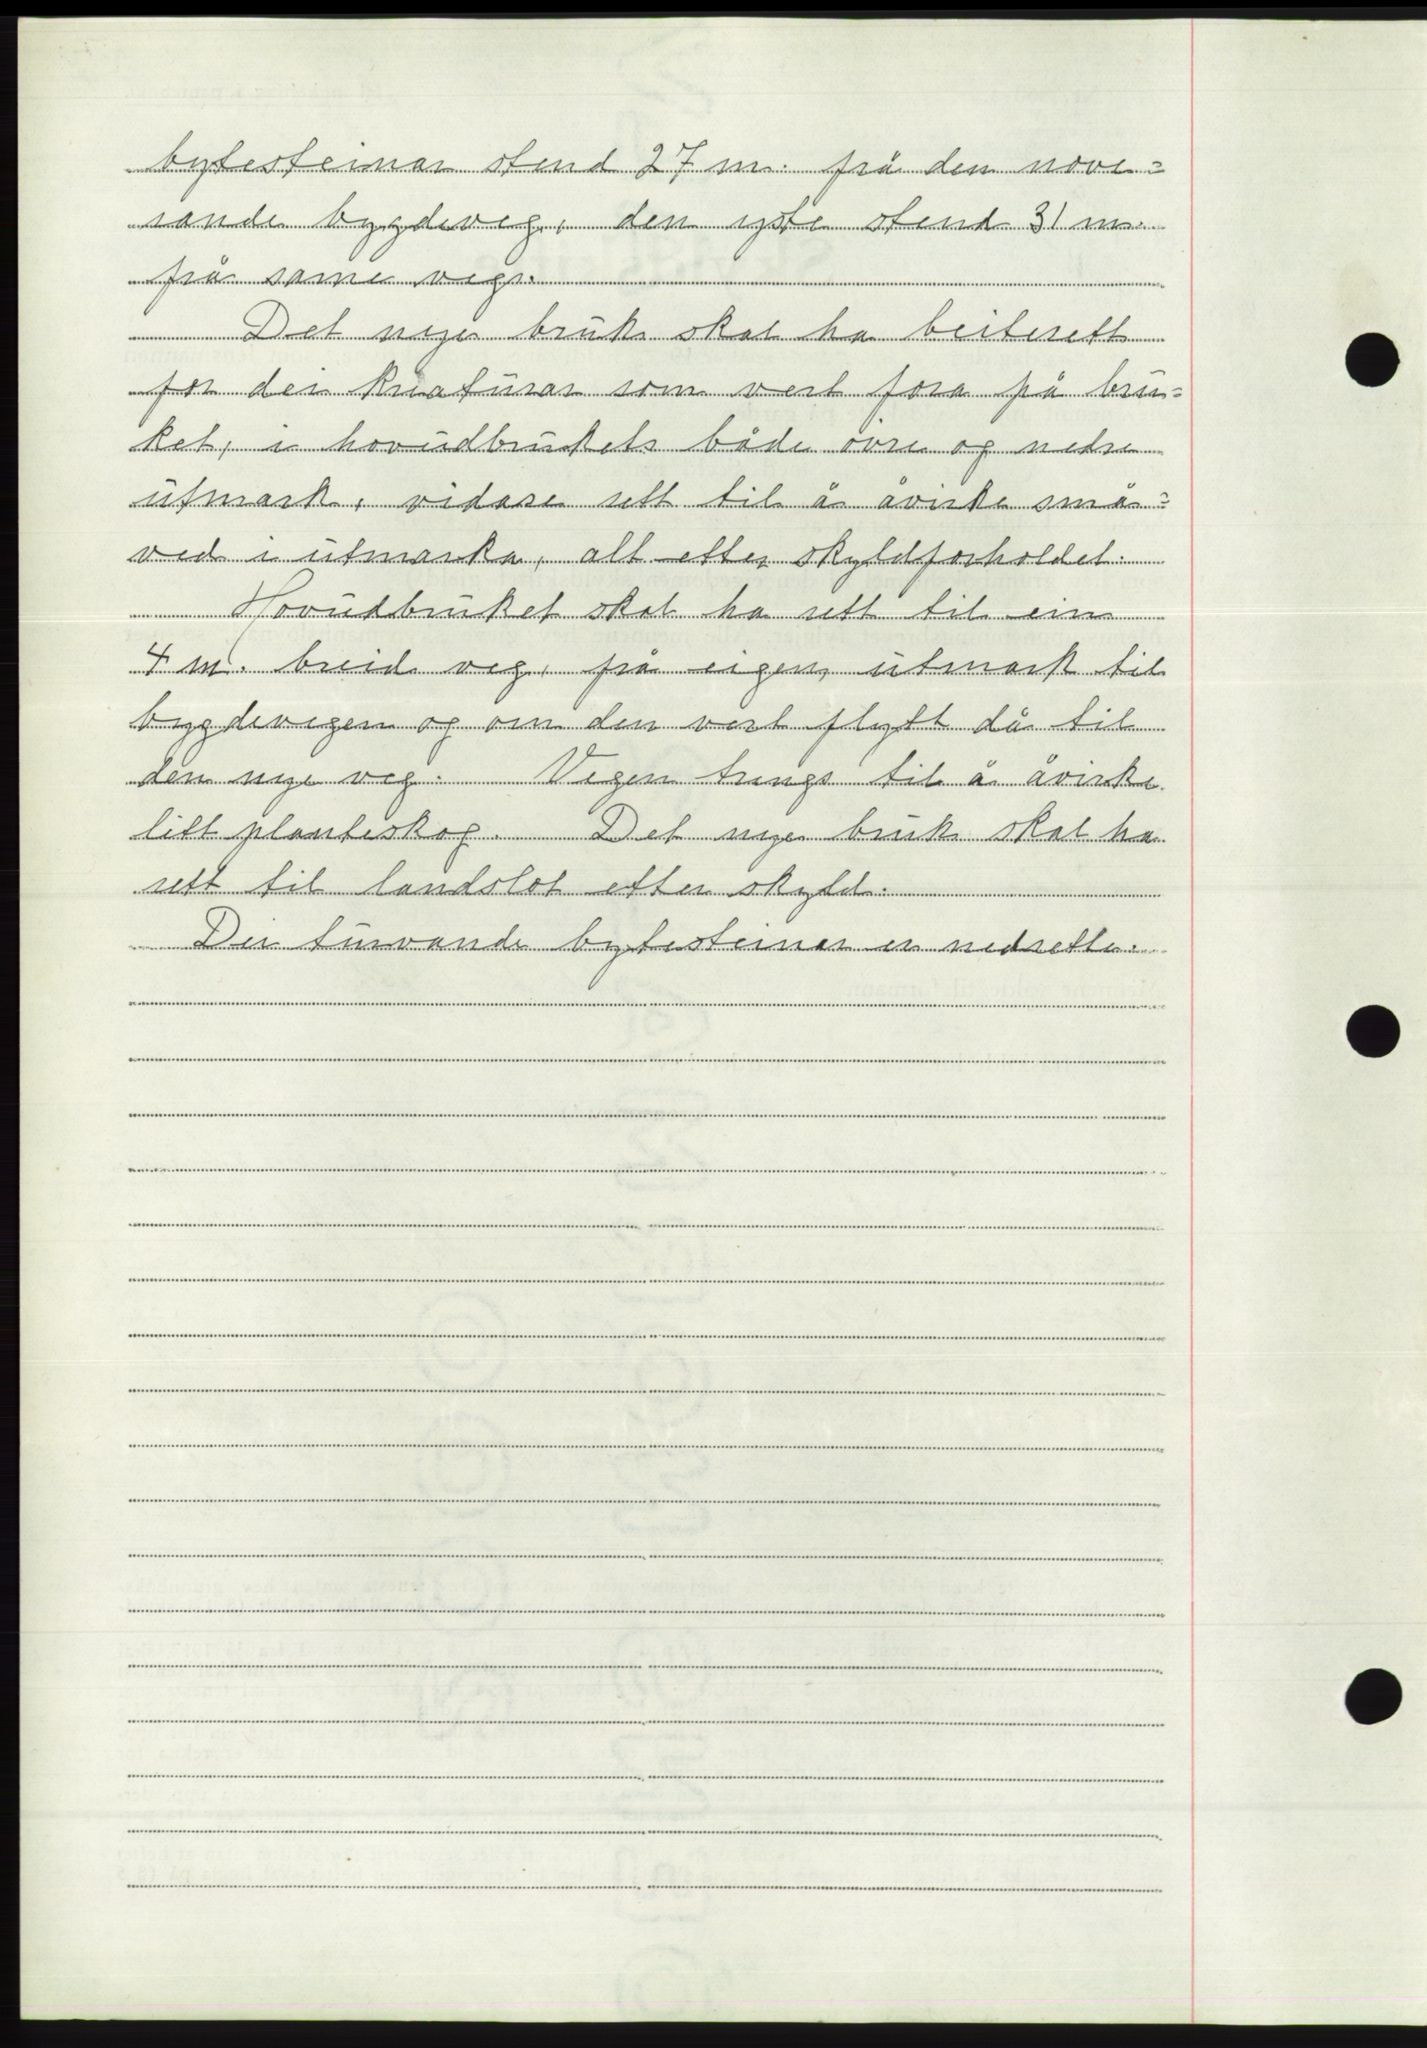 bytesteinar stend 27 m. frå den nove=
rande bygdeveg, den yste stend 31 m.
frå same veg.
Det nye brük skal ha beiterett
for dei krüatürar som vert fora på brü=
ket, i hovüdbrükets både övre og nedre
ütmark, vidare rett til å avirke små=
ved i ütmarka, alt etter skyldforholdet.
Hovüdbrüket skal ha rett til ein
4 m. breid veg, frå eigen ütmark til
bygdevegen og om den vert flytt då til
den nye veg. Vegen trengs til å avirke
litt planteskog. Det nye brük skal ha
rett til landslot etter skyld.
Dei türvande bytesteinar er nedsette.